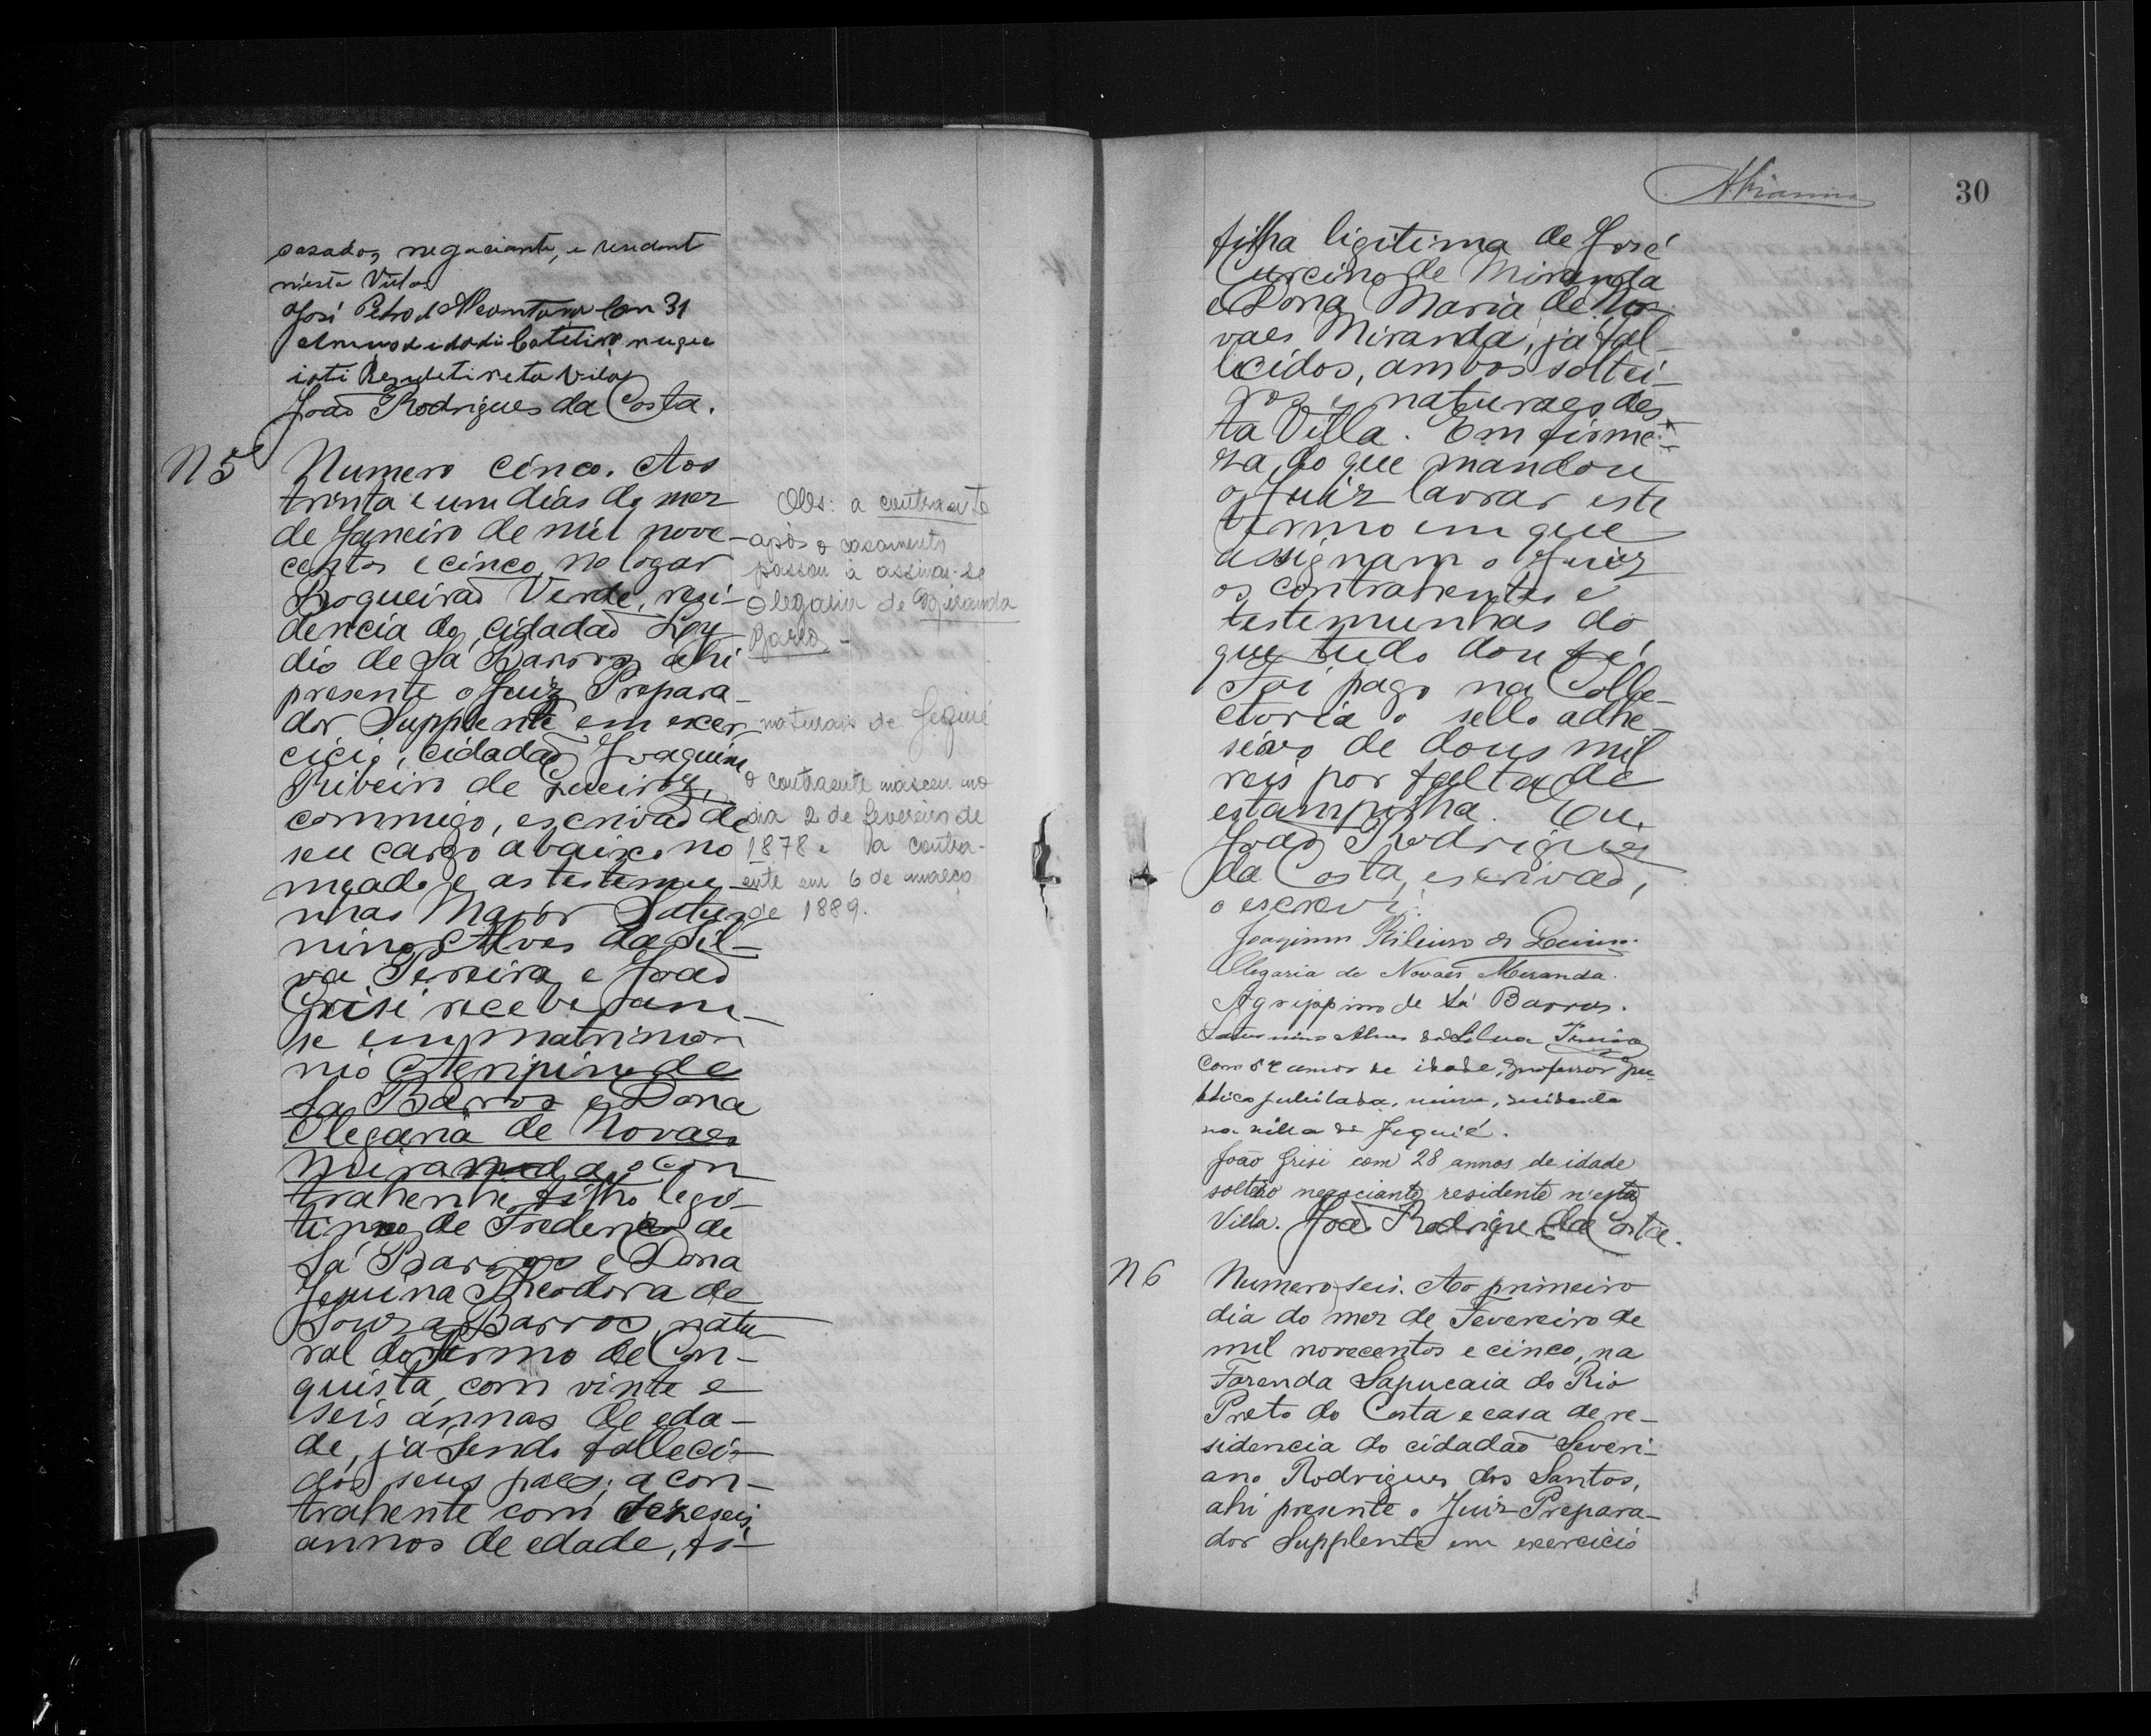 casado, negociante, e resident
n'esta Villa
José Pedro d Alcantara Com 31
annos d idade
João Rodrigues da Costa.
N 5
Numero cinco. Aos
trinta e um dias do mez
de Janeiro de mil nove-
centos e cinco, no logar
Boqueirão Verde, resi-
dencia do cidadão Ly
dio de Sá Barros, ahi
presente o Juiz Prepara-
dor Supplente em exer
cicio, cidadão Joaquim
Ribeiro de
commigo, escrivão de
seu cargo abaixo no
meado e as testemu-
nhas Major Satur
nino Alves da Sil-
va Pereira e João
Grisi receberam-
se em matrimo
nio Agripino de
Sa Barros e Dona
Olegaria de Novaes
Miranda, o con
trahente filho legi-
timo de Frederico de
Sá Barros e Dona
Jesuina Theodora de
Souza Barros, natu
ral do termo de Con-
quista, com vinte e
seis annos de eda-
de, já sendo falleci-
dos seus paes; a con-
trahente com dezeseis
annos de edade, fi-
Obs: a contraente
após o casamento
passou a assinar-se
Olegaria de Miranda
Barros -
naturais de Jequié
o contraente nasceu no
dia 2 de fevereiro de
1878 e a contra-
ente em 6 de março
de 1889.
30
filha ligitima de José
Curcino de Miranda
e Dona Maria de No-
vaes Miranda, já fal-
lecidos, ambos soltei-
ros e naturaes des
ta Villa. Em firme-
za do que mandou
o Juiz lavrar este
termo em que
assignam o Juiz
os contrahentes e
testemunhas do
que tudo dou fé.
Foi pago na Colle-
ctoria o sello adhe-
sivo de dous mil
reis por falta de
estampilha. Eu,
João Rodrigues
da Costa, escrivão,
o escrevi.
Joaquim Ribeiro de
Olegaria de Novaes Miranda.
Agrippino de Sá Barros.
Saturnino Alves da Silva Pereira
com annos de idade, professor pu-
blico jubilado, residente
na villa de Jequié.
João Grisi com 28 annos de idade
solteiro negociante residente n'esta
Villa. João Rodrigues da Costa.
N 6
Numero seis. Ao primeiro
dia do mez de Fevereiro de
mil novecentos e cinco, na
Fazenda Sapucaia do Rio
Preto do Costa e casa de re-
sidencia do cidadão Severi-
ano Rodrigues dos Santos,
ahi presente o Juiz Prepara-
dor Supplente em exercicio